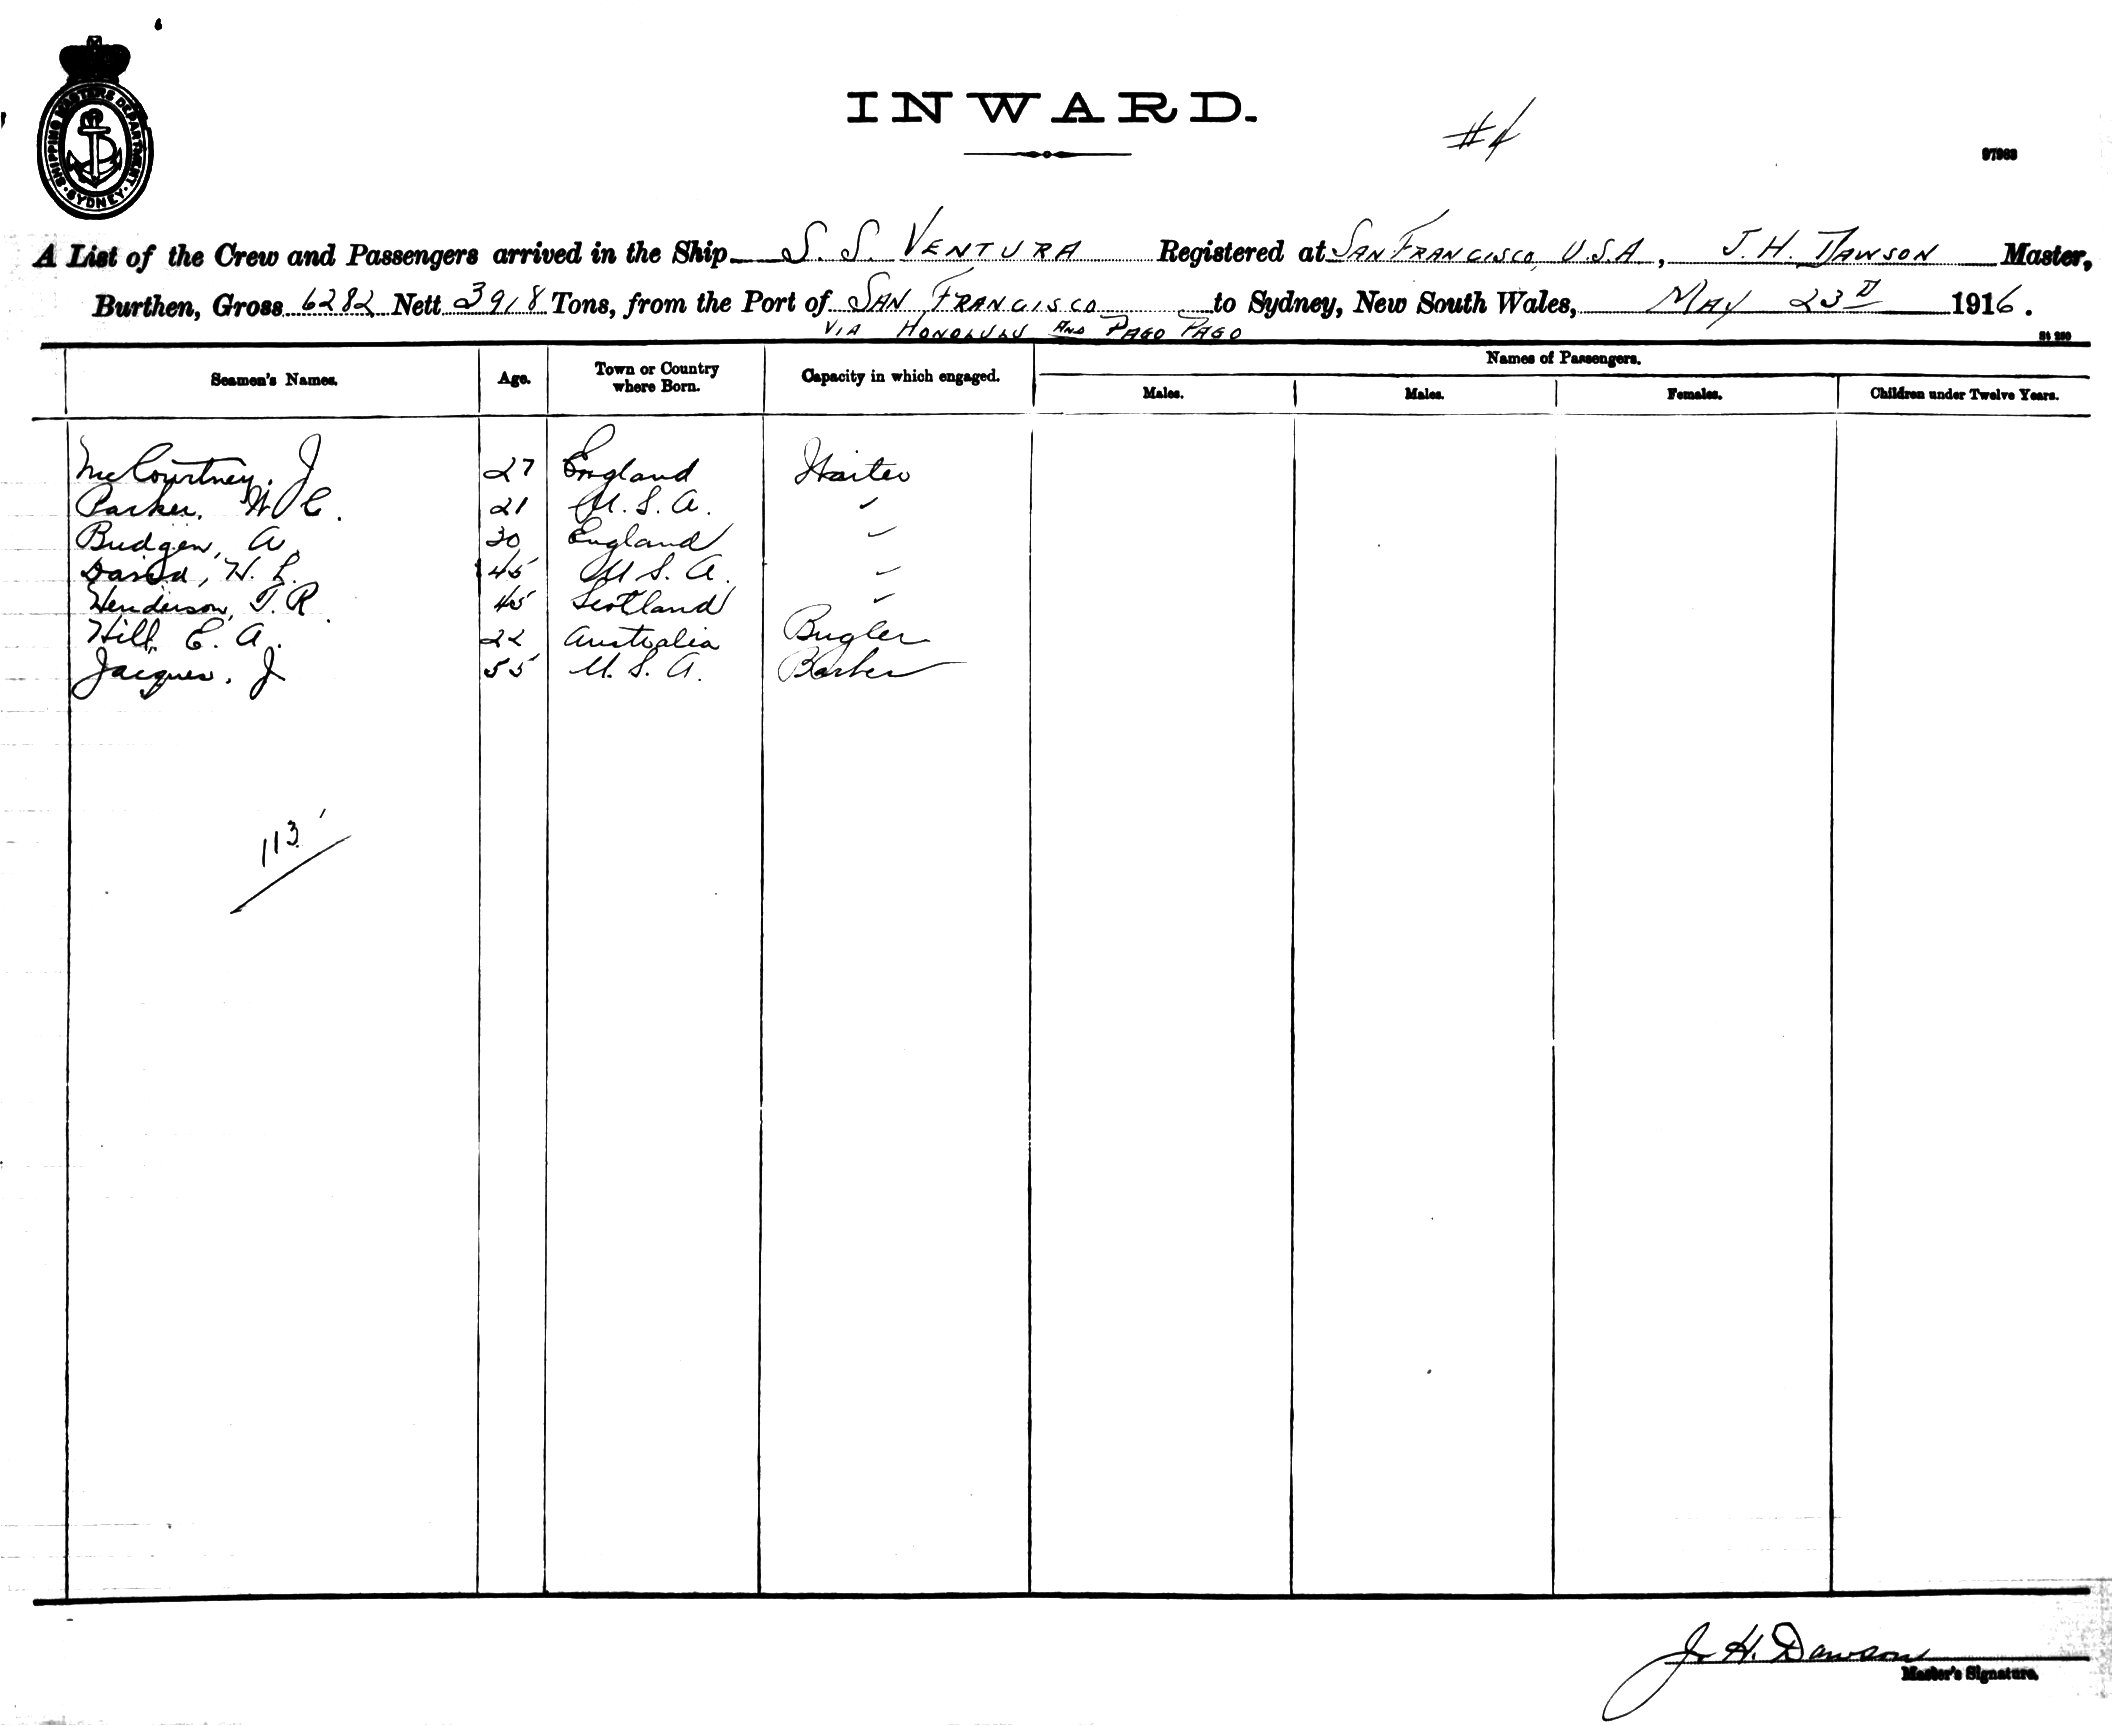 SHIPPING MASTERS DEPARTMENT
SYDNEY
INWARD.
#4
97963
A List of the Crew and Passengers arrived in the Ship S. S. VENTURA Registered at SAN FRANCISCO, U.S.A, J. H. DAWSON Master,
Burthen, Gross 6282 Nett 3918 Tons, from the Port of SAN FRANCISCO to Sydney, New South Wales, MAY 23D 1916.
VIA HONOLULU AND PAGO PAGO
Seamen's Names. Age. Town or Country where Born. Capacity in which engaged. Names of Passengers.
Males. Males. Females. Children under Twelve Years.
McCourtney, J 27 England Waiter
Parker, W C. 21 U. S. A. "
Budgen, A. 30 England "
David, H. L. 45 U S. A. "
Henderson, T. R. 45 Scotland "
Hill, E. A. 22 Australia Bugler
Jacques, J 55 U. S. A. Barber
113
J. H. Dawson
Master's Signature.